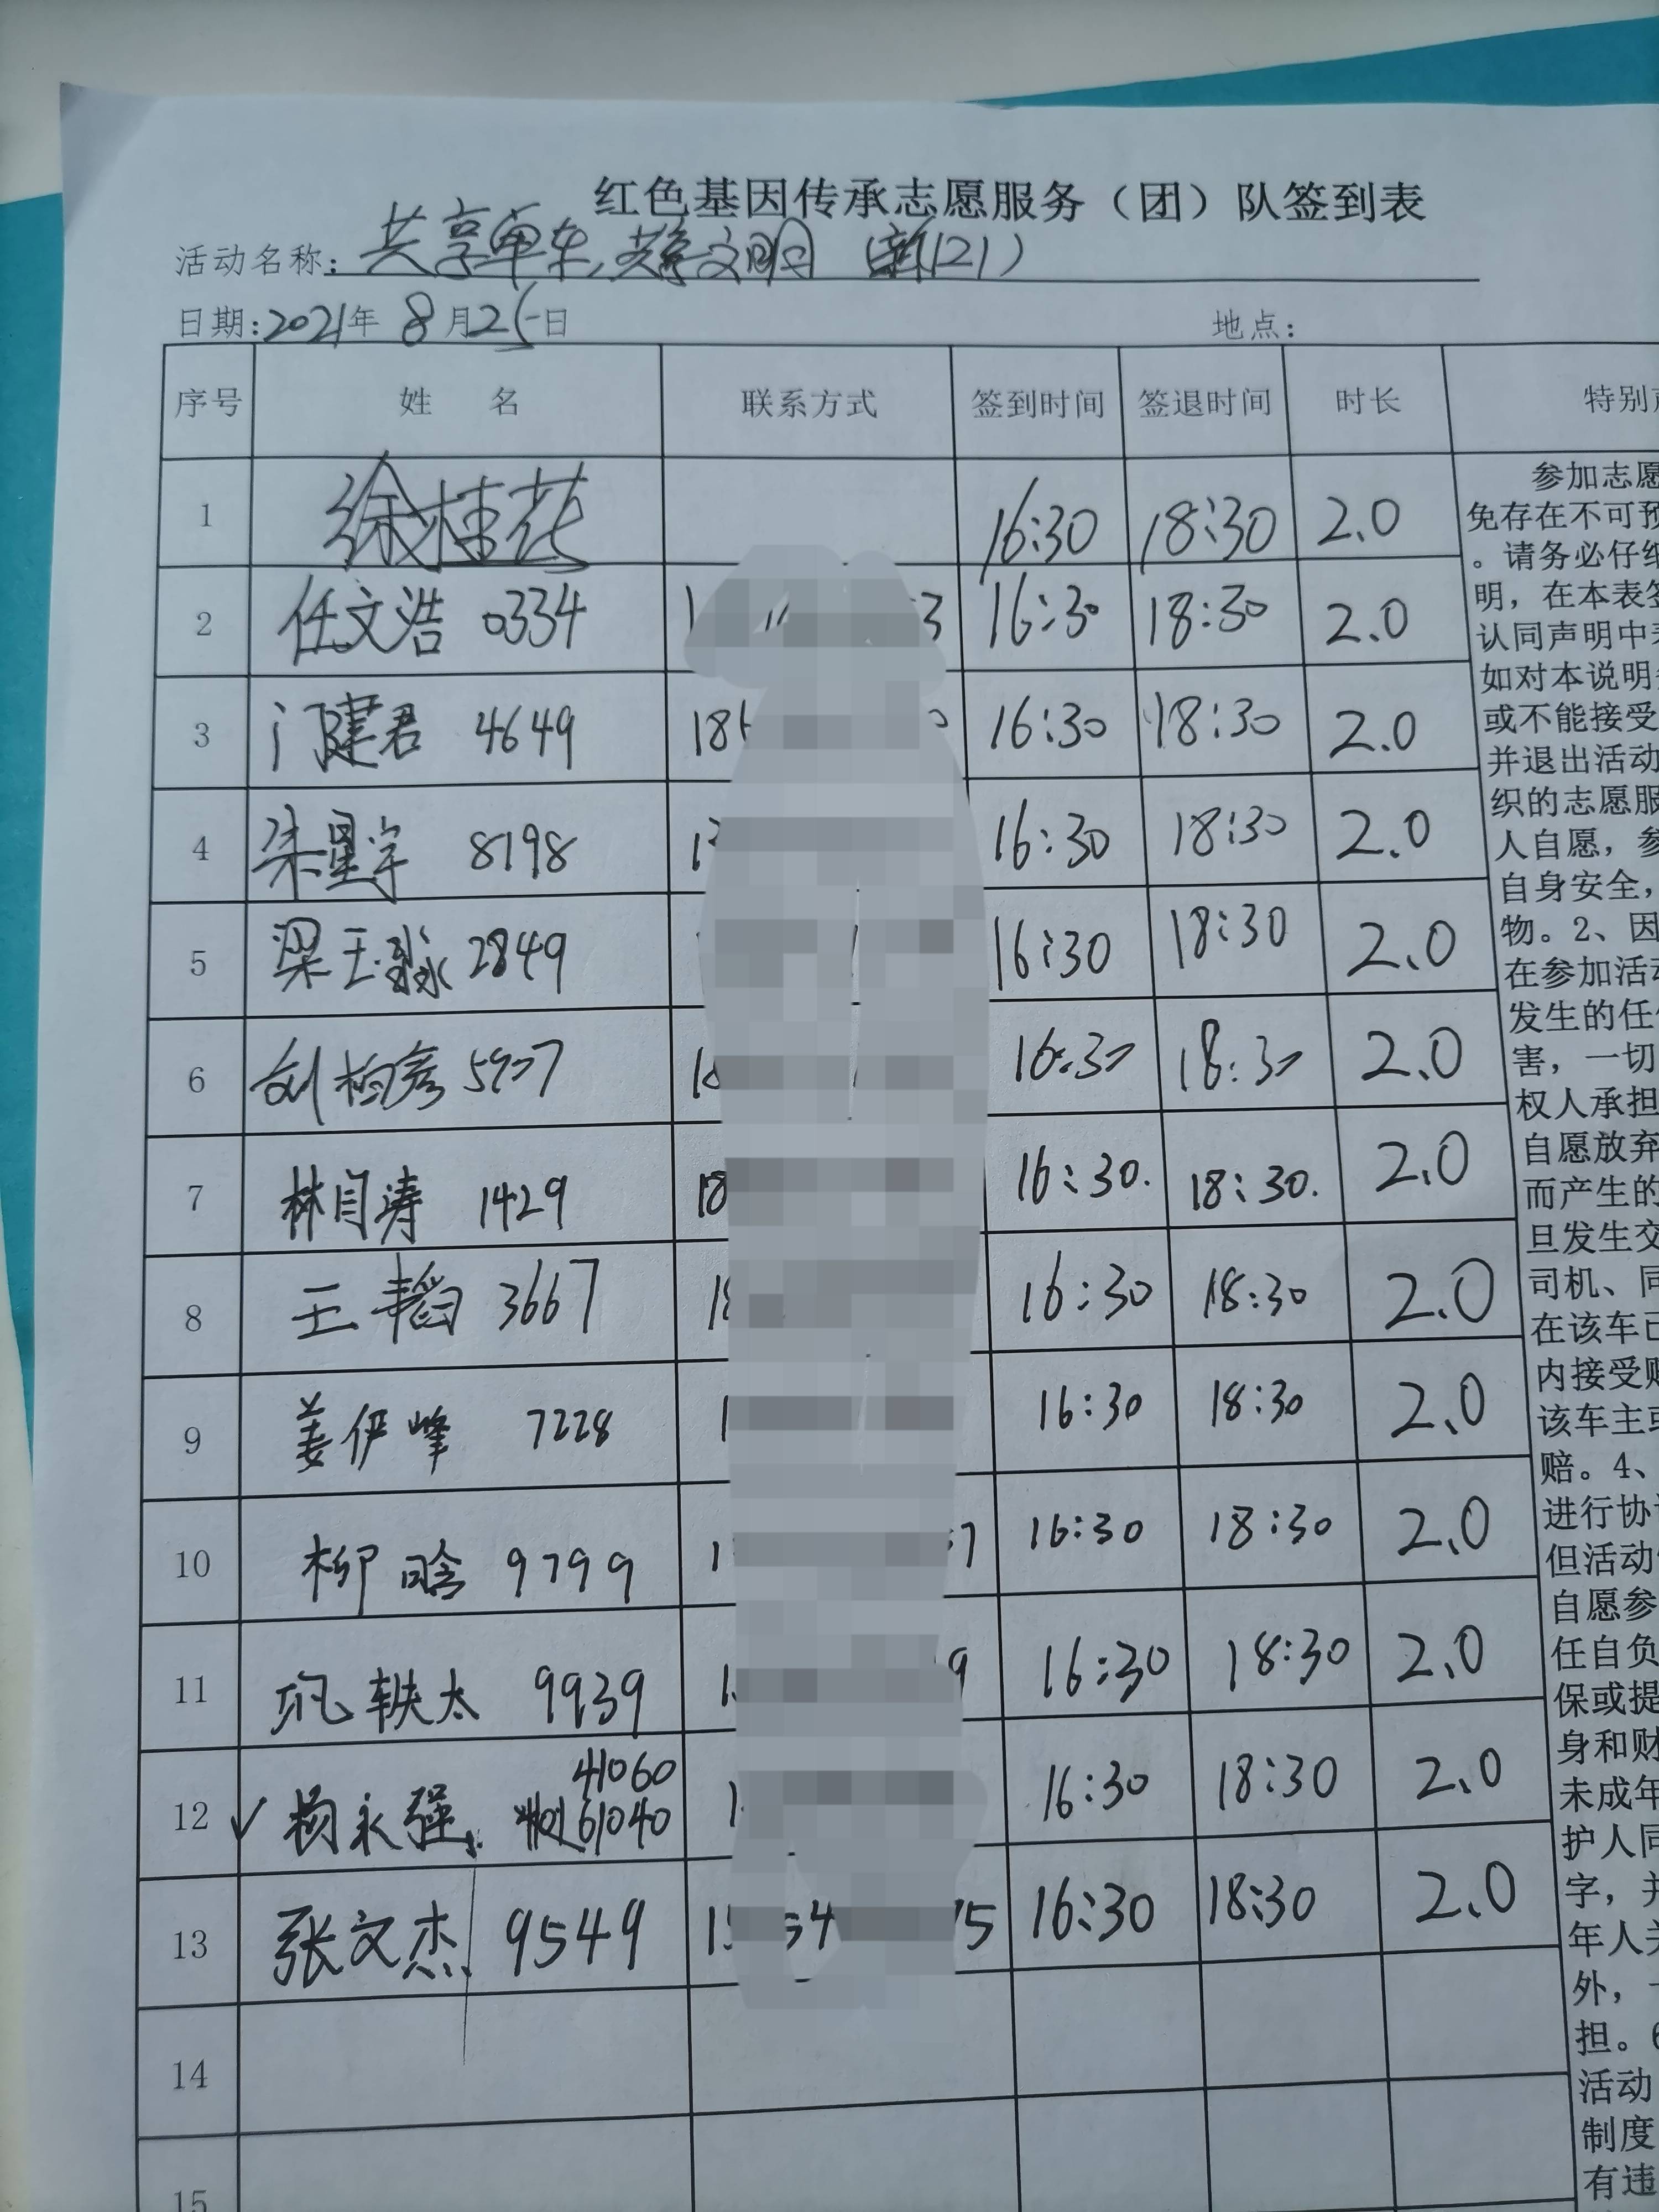 红色基因传承志愿服务（团）队签到表
活动名称：共享单车，共享文明 （新121）
日期：2021年 8月25日 地点：
序号 姓 名 联系方式 签到时间 签退时间 时长 特别
1 徐桂花 16:30 18:30 2.0
2 任文浩 0334 3 16:30 18:30 2.0
3 门建君 4649 18 16:30 18:30 2.0
4 朱星宇 8198 1 16:30 18:30 2.0
5 梁玉 2849 16:30 18:30 2.0
6 刘柏彦 5907 1 16:30 18:30 2.0
7 林自涛 1429 18 16:30. 18:30. 2.0
8 王韬 3667 18 16:30 18:30 2.0
9 姜伊峰 7228 1 16:30 18:30 2.0
10 柳晗 9799 1 7 16:30 18:30 2.0
11 轶太 9939 1 9 16:30 18:30 2.0
12 杨永强 41060 61040 1 16:30 18:30 2.0
13 张文杰 9549 1 54 75 16:30 18:30 2.0
14
15
参加志愿
免存在不可预
。请务必仔细
明，在本表签
认同声明中
如对本说明
或不能接受
并退出活动
织的志愿服
人自愿，参
自身安全，
物。2、因
在参加活动
发生的任
害，一切
权人承担
自愿放弃
而产生的
旦发生交
司机、同
在该车已
内接受
该车主或
赔。4、
进行协
但活动
自愿参
任自负
保或提
身和财
未成年
护人同
字，并
年人
外，一
担。6
活动
制度
有违